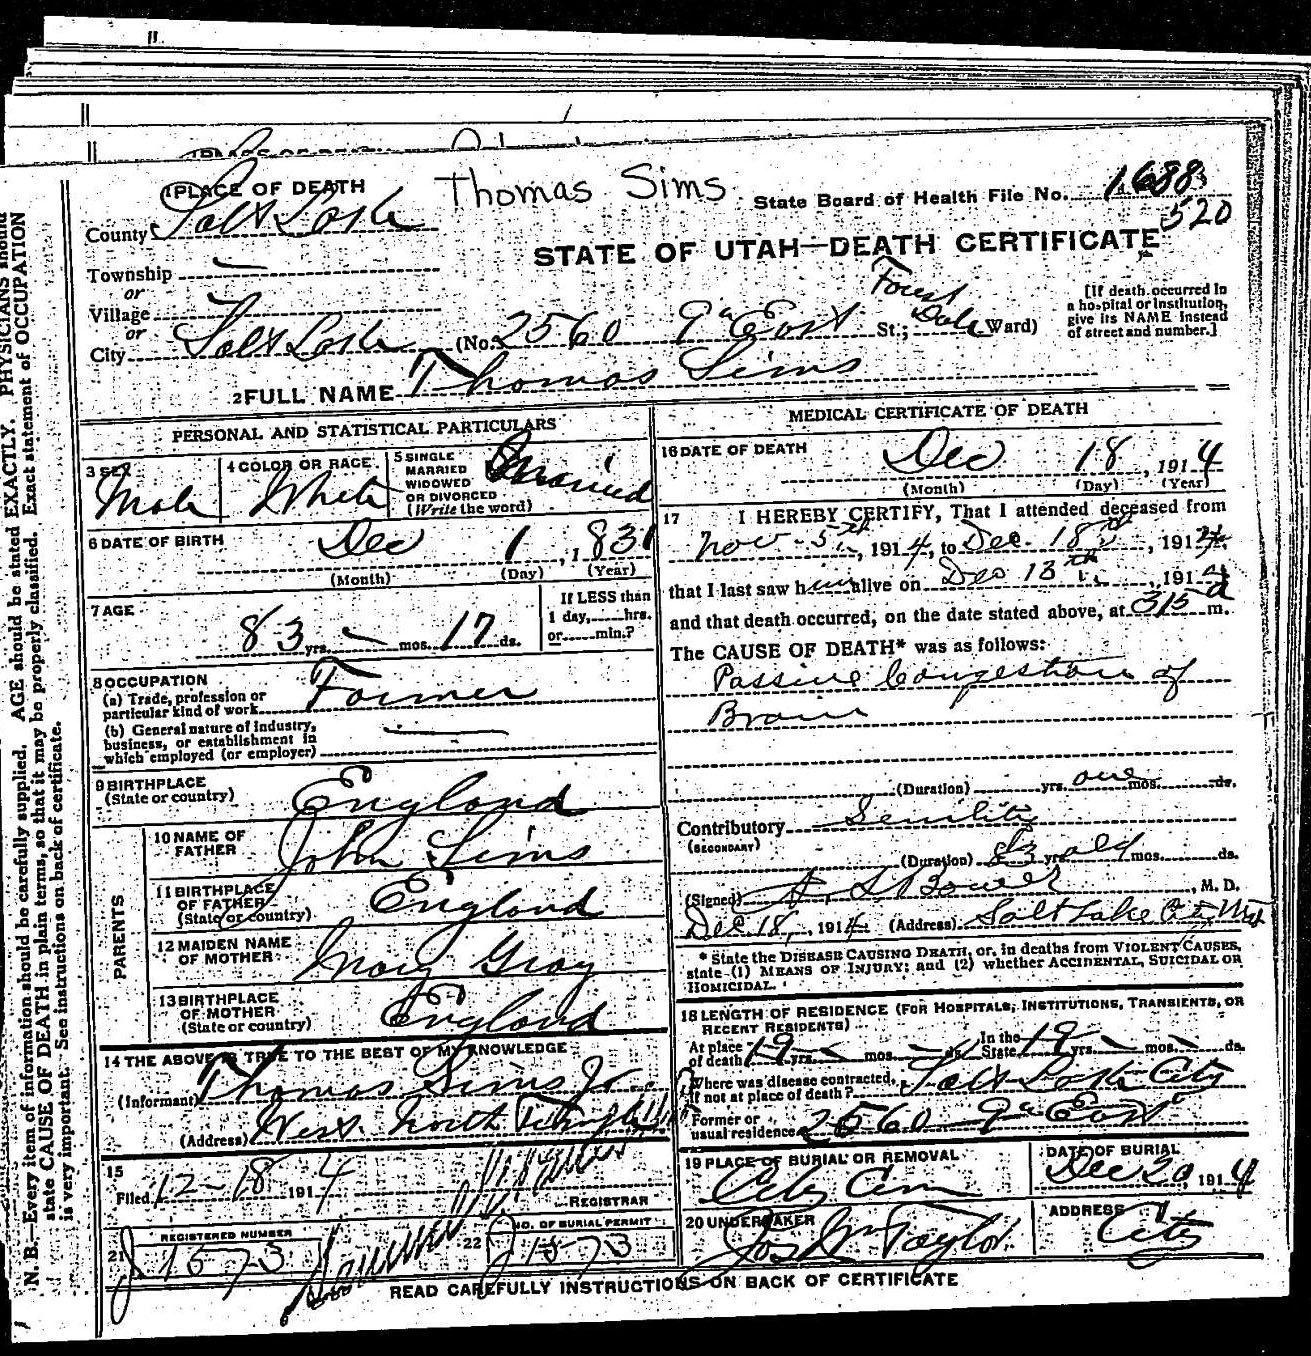 1 PLACE OF DEATH
Thomas Sims
State Board of Health File No. 1688
520
County Salt Lake
STATE OF UTAH—DEATH CERTIFICATE
Township —
or
Village
or
City Salt Lake (No. 2560 9th East St.; Forest Dale Ward)
[If death occurred in
a hospital or institution,
give its NAME instead
of street and number.]
2 FULL NAME Thomas Sims
PERSONAL AND STATISTICAL PARTICULARS
3 SEX
Male
4 COLOR OR RACE
White
5 SINGLE
MARRIED
WIDOWED
OR DIVORCED
(Write the word)
Married
6 DATE OF BIRTH
Dec 1, 1831
(Month) (Day) (Year)
7 AGE
83 yrs. — mos. 17 ds.
If LESS than
1 day, hrs.
or min.?
8 OCCUPATION
(a) Trade, profession or
particular kind of work Farmer
(b) General nature of industry,
business, or establishment in
which employed (or employer) —
9 BIRTHPLACE
(State or country) England
PARENTS
10 NAME OF
FATHER John Sims
11 BIRTHPLACE
OF FATHER
(State or country) England
12 MAIDEN NAME
OF MOTHER Mary Gray
13 BIRTHPLACE
OF MOTHER
(State or country) England
14 THE ABOVE IS TRUE TO THE BEST OF MY KNOWLEDGE
(Informant) Thomas Sims Jr.
(Address) West North Temple
15
Filed 12-18 1914
REGISTRAR
REGISTERED NUMBER
21 J 1573
NO. OF BURIAL PERMIT
22 J 1573
MEDICAL CERTIFICATE OF DEATH
16 DATE OF DEATH
Dec 18, 1914
(Month) (Day) (Year)
17 I HEREBY CERTIFY, That I attended deceased from
Nov - 5th, 1914, to Dec. 18th, 1914,
that I last saw him alive on Dec 13th, 1914
and that death occurred, on the date stated above, at 315 a m.
The CAUSE OF DEATH* was as follows:
Passive Congestion of
Brain
(Duration) yrs. one mos. ds.
Contributory Senility
(SECONDARY)
(Duration) 83 yrs old mos. ds.
(Signed) , M. D.
Dec 18, 1914 (Address) Salt Lake City Utah
* State the DISEASE CAUSING DEATH, or, in deaths from VIOLENT CAUSES,
state (1) MEANS OF INJURY; and (2) whether ACCIDENTAL, SUICIDAL OR
HOMICIDAL.
18 LENGTH OF RESIDENCE (FOR HOSPITALS, INSTITUTIONS, TRANSIENTS, OR
RECENT RESIDENTS)
At place
of death 19 yrs. — mos. — ds. In the
State 19 yrs. — mos. — ds.
Where was disease contracted,
if not at place of death? Salt Lake City
Former or
usual residence 2560 9th East
19 PLACE OF BURIAL OR REMOVAL
City Cem
DATE OF BURIAL
Dec 20, 1914
20 UNDERTAKER
Jos Wm Taylor
ADDRESS
City
READ CAREFULLY INSTRUCTIONS ON BACK OF CERTIFICATE
N. B.—Every item of information should be carefully supplied. AGE should be stated EXACTLY. PHYSICIANS should
state CAUSE OF DEATH in plain terms, so that it may be properly classified. Exact statement of OCCUPATION
is very important. See instructions on back of certificate.